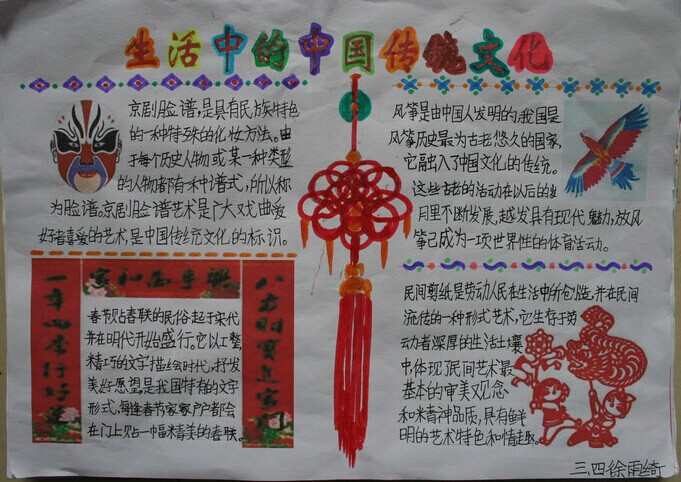 生活中的中国传统文化
京剧脸谱,是具有民族特色
的一种特殊的化妆方法。由
于每个历史人物或某一种类型
的人物都有一种谱式,所以称
为脸谱。京剧脸谱艺术是广大戏曲爱
好者喜爱的艺术,是中国传统文化的标识。
风筝是由中国人发明的,我国是
风筝历史最为古老悠久的国家,
它融入了中国文化的传统。
这些古老的活动在以后的岁
月里不断发展,越发具有现代魅力,放风
筝已成为一项世界性的体育活动。
家和万事兴
一年四季行好运
八方财宝进家门
春节贴春联的民俗起于宋代
并在明代开始盛行。它以工整、
精巧的文字描绘时代,抒发
美好愿望,是我国特有的文字
形式,每逢春节家家户户都会
在门上贴一幅精美的春联。
民间剪纸是劳动人民在生活中所创造,并在民间
流传的一种形式艺术,它生存于劳
动者深厚的生活土壤
中体现了民间艺术最
基本的审美观念
和精神品质,具有鲜
明的艺术特色和情趣。
三.四徐雨绮